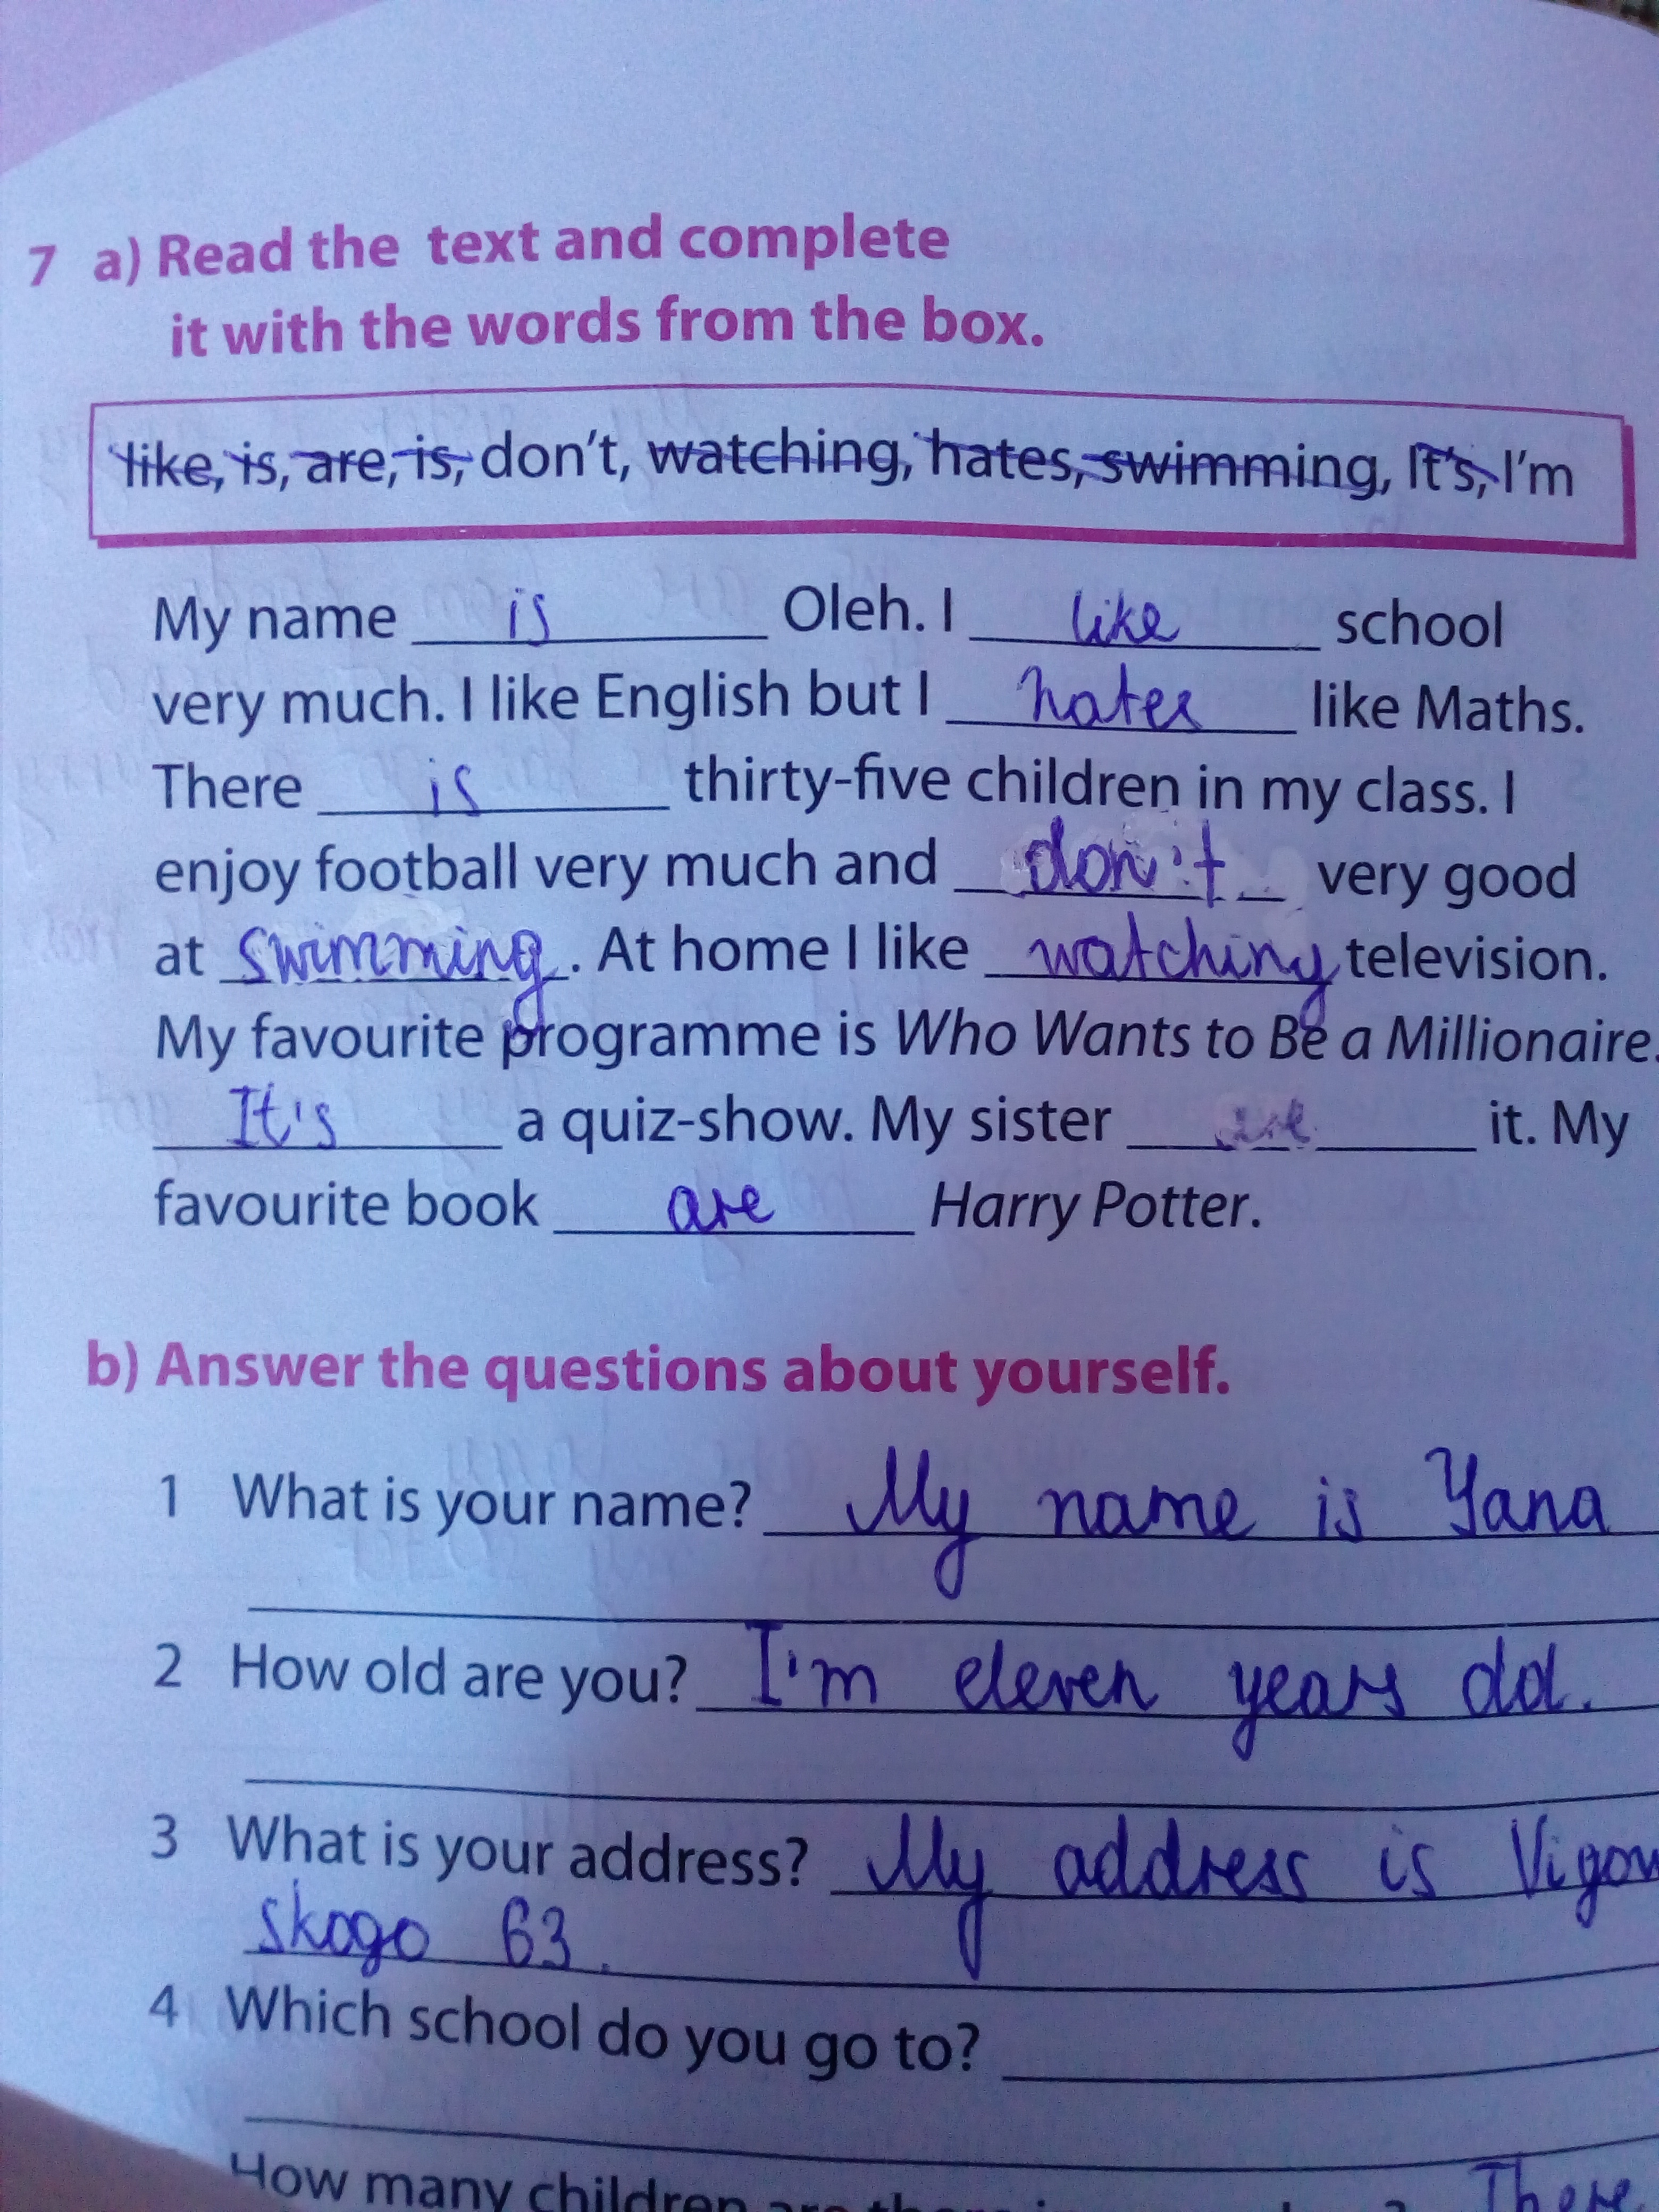 7 a) Read the text and complete
it with the words from the box.
like, is, are, is, don't, watching, hates, swimming, It's, I'm
My name is Oleh. I like school
very much. I like English but I hates like Maths.
There is thirty-five children in my class. I
enjoy football very much and don't very good
at swimming. At home I like watching television.
My favourite programme is Who Wants to Be a Millionaire.
It's a quiz-show. My sister are it. My
favourite book are Harry Potter.
b) Answer the questions about yourself.
1 What is your name? My name is Yana
2 How old are you? I'm eleven years old.
3 What is your address? My address is Vigov
skogo 63.
4 Which school do you go to?
How many children are there in There